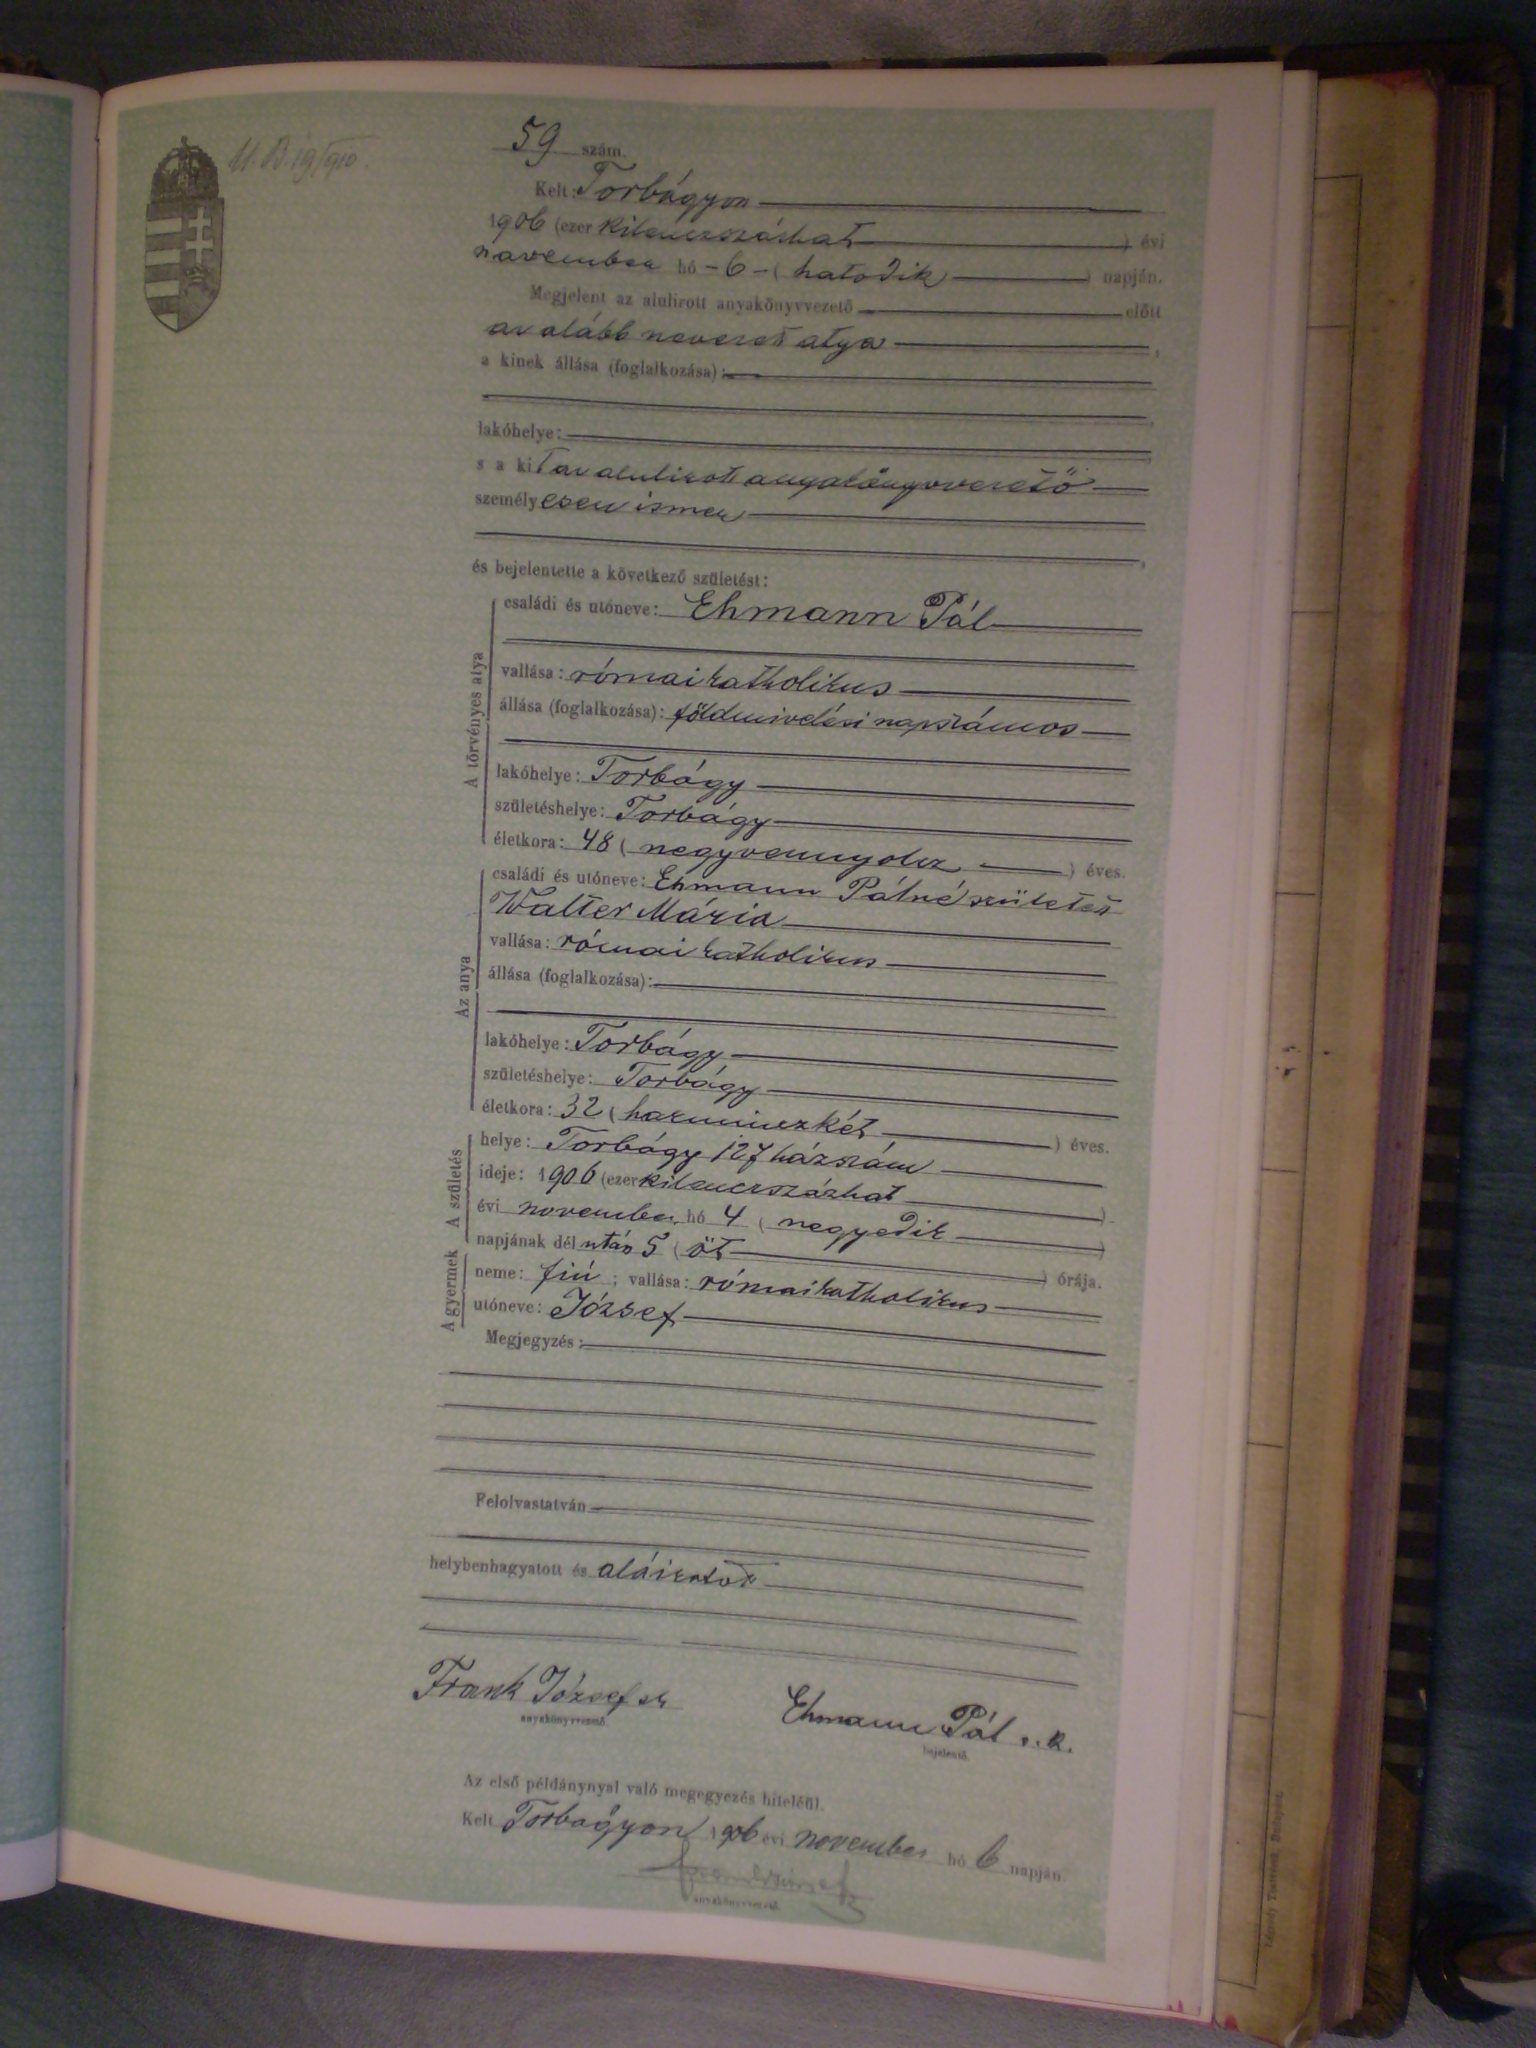 59 szám.
Kelt: Torbágyon
1906 (ezer kilenczszázhat) évi
november hó - 6 - (hatodik) napján.
Megjelent az alulirott anyakönyvvezető előtt
az alább nevezett atya,
a kinek állása (foglalkozása):
lakóhelye:
s a kit az alulirott anyakönyvvezető
személyesen ismer
és bejelentette a következő születést:
A törvényes atya
családi és utóneve: Ehmann Pál
vallása: római katholikus
állása (foglalkozása): földmivelési napszámos
lakóhelye: Torbágy
születéshelye: Torbágy
életkora: 48 (negyvennyolcz) éves.
Az anya
családi és utóneve: Ehmann Pálné született
Walter Mária
vallása: római katholikus
állása (foglalkozása):
lakóhelye: Torbágy
születéshelye: Torbágy
életkora: 32 (harminczkét) éves.
A születés
helye: Torbágy 127 házszám
ideje: 1906 (ezer kilenczszázhat)
évi november hó 4 (negyedik)
napjának dél után 5 (öt) órája.
A gyermek
neme: fiú; vallása: római katholikus
utóneve: József
Megjegyzés:
Felolvastatván
helybenhagyatott és aláiratott
Frank József sk
anyakönyvvezető.
Ehmann Pál s. k.
bejelentő.
Az első példánynyal való megegyezés hiteléül.
Kelt Torbágyon 1906 évi november hó 6 napján.
anyakönyvvezető.